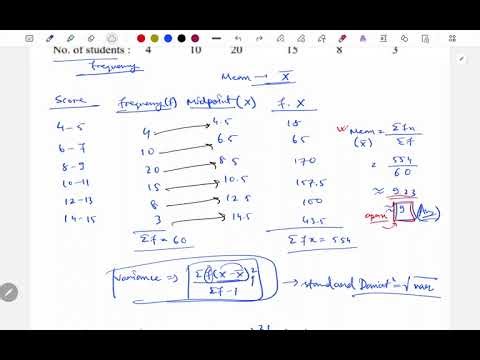 No. of students : 4 10 20 15 8 3
frequency
Mean → X̄
Score frequency(f) Midpoint(X) f. X
4-5 4 4.5 18
6-7 10 6.5 65
8-9 20 8.5 170
10-11 15 10.5 157.5
12-13 8 12.5 100
14-15 3 14.5 43.5
Σf = 60 Σfx = 554
Mean = Σfx / Σf
(x̄)
= 554 / 60
≈ 9.23
≈ 9
Variance ⇒ Σf(x-x̄)² / Σf-1 → standard Deviatⁿ = √var